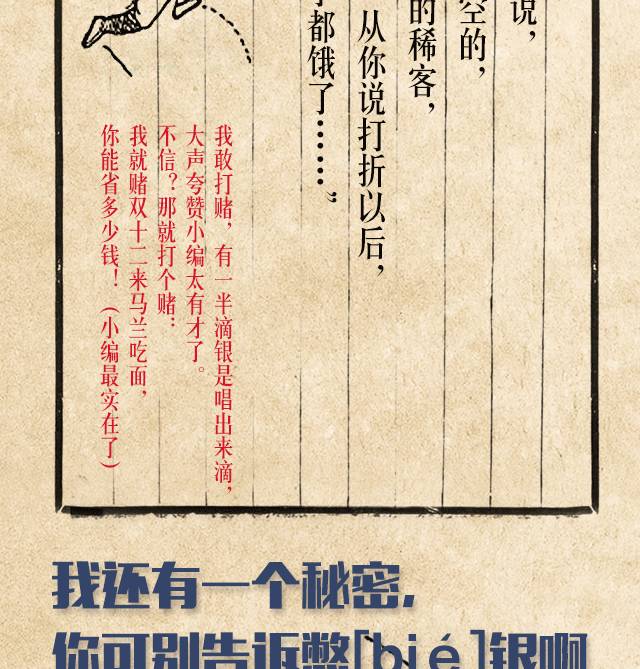 说，
空的，
的稀客，
从你说打折以后，
都饿了……”
我敢打赌，有一半滴银是唱出来滴，
大声夸赞小编太有才了。
不信？那就打个赌：
我就赌双十二来马兰吃面，
你能省多少钱！（小编最实在了）
我还有一个秘密，
你可别告诉憋[bié]银啊